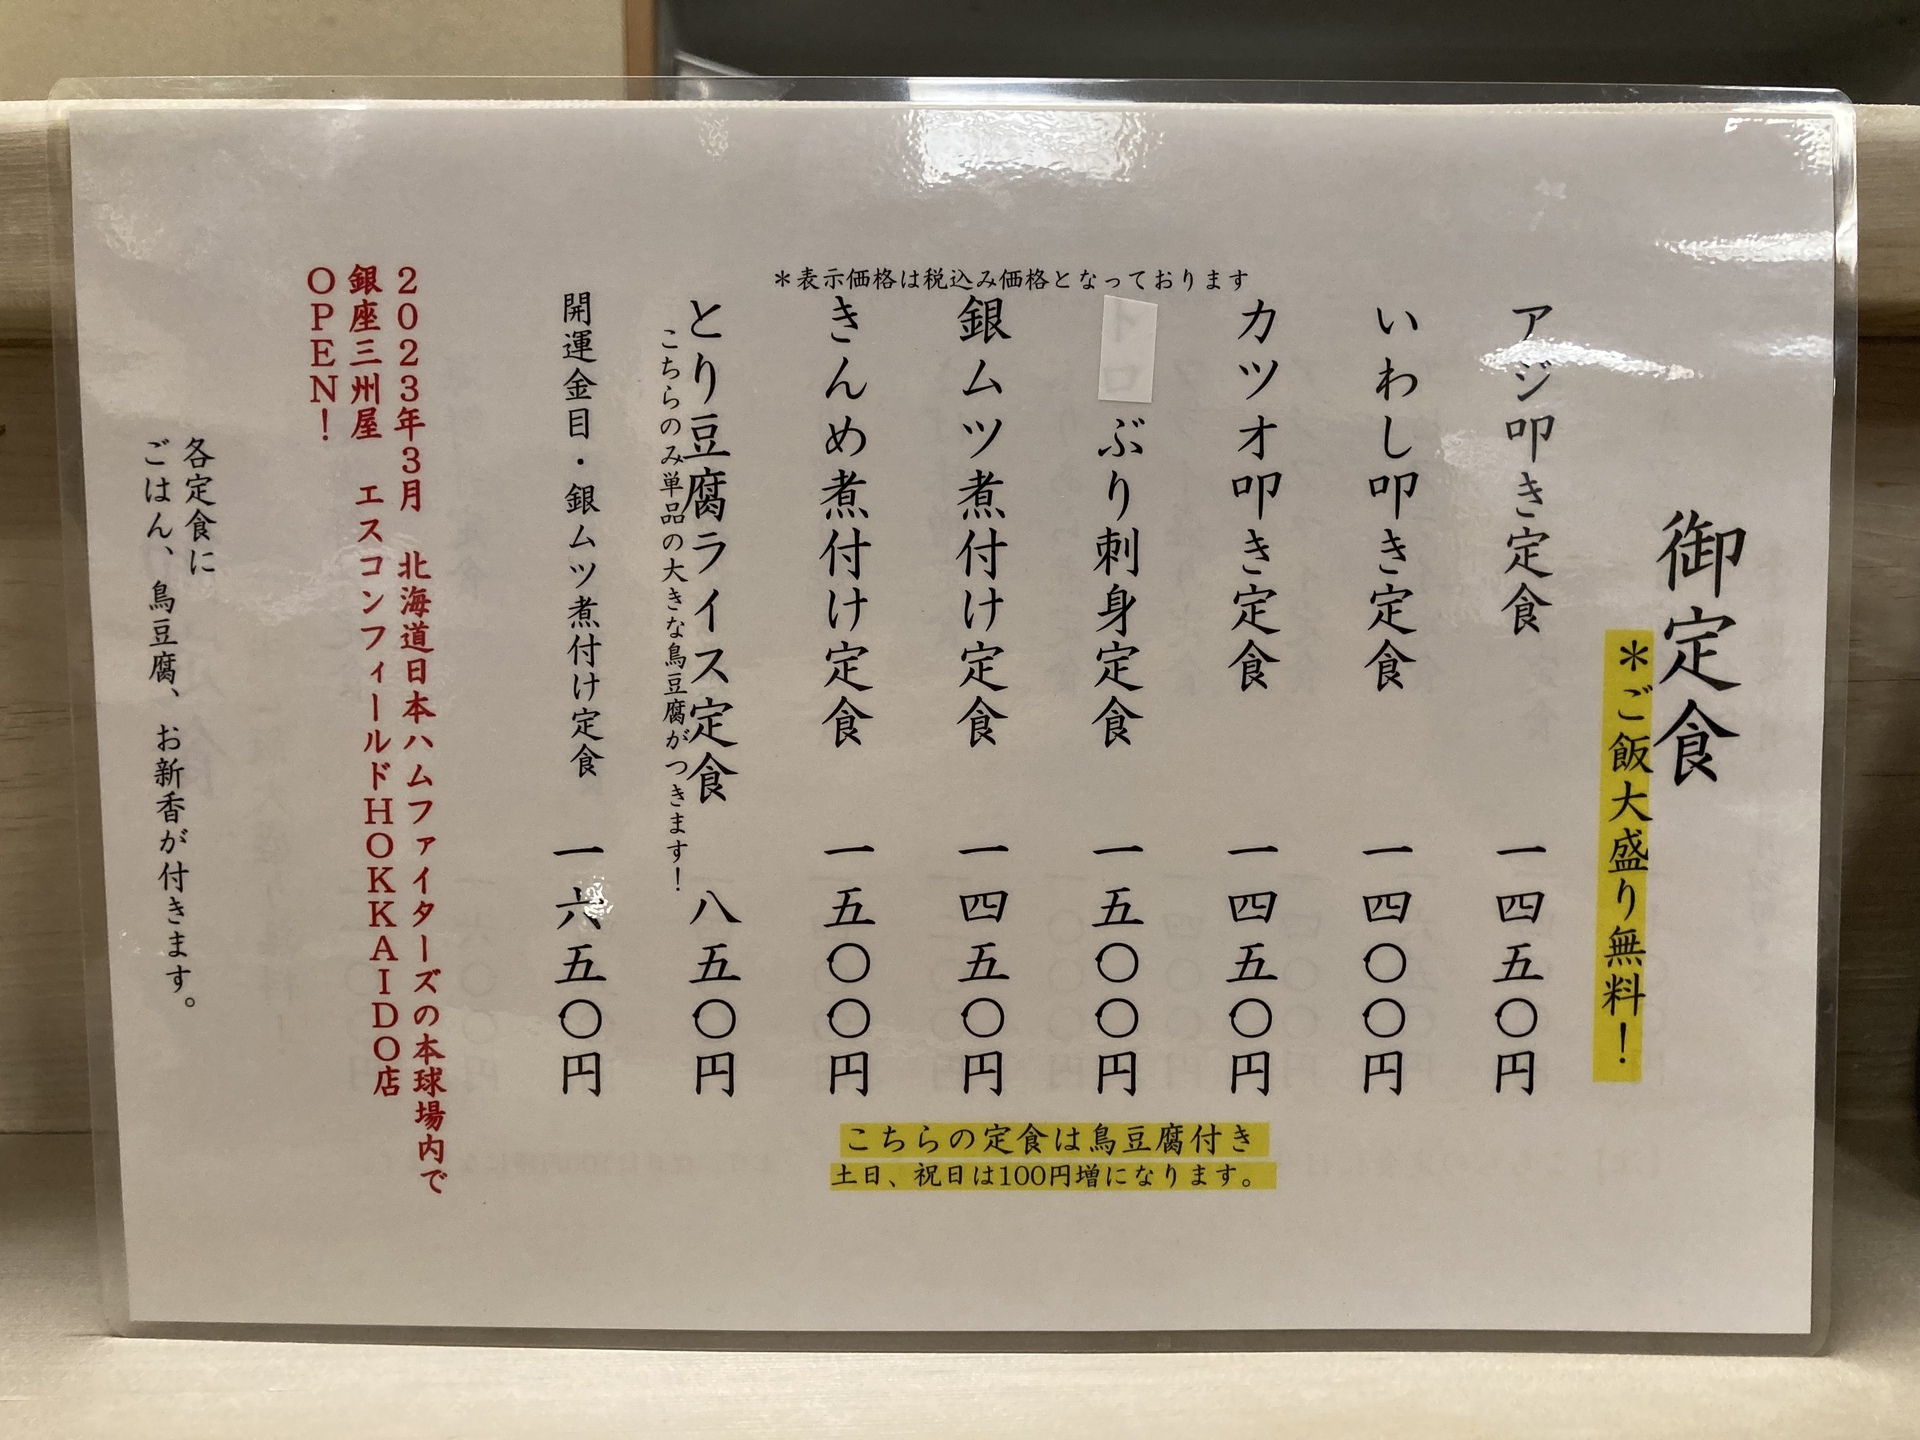 御定食
＊ご飯大盛り無料！
アジ叩き定食　一四五〇円
いわし叩き定食　一四〇〇円
カツオ叩き定食　一四五〇円
イロぶり刺身定食　一五〇〇円
銀ムツ煮付け定食　一四五〇円
きんめ煮付け定食　一五〇〇円
とり豆腐ライス定食　八五〇円
こちらのみ単品の大きな鳥豆腐がつきます！
開運金目・銀ムツ煮付け定食　一六五〇円
＊表示価格は税込み価格となっております
こちらの定食は鳥豆腐付き
土日、祝日は100円増になります。
2023年3月　北海道日本ハムファイターズの本球場内で
銀座三州屋　エスコンフィールドHOKKAIDO店
OPEN！
各定食に
ごはん、鳥豆腐、お新香が付きます。